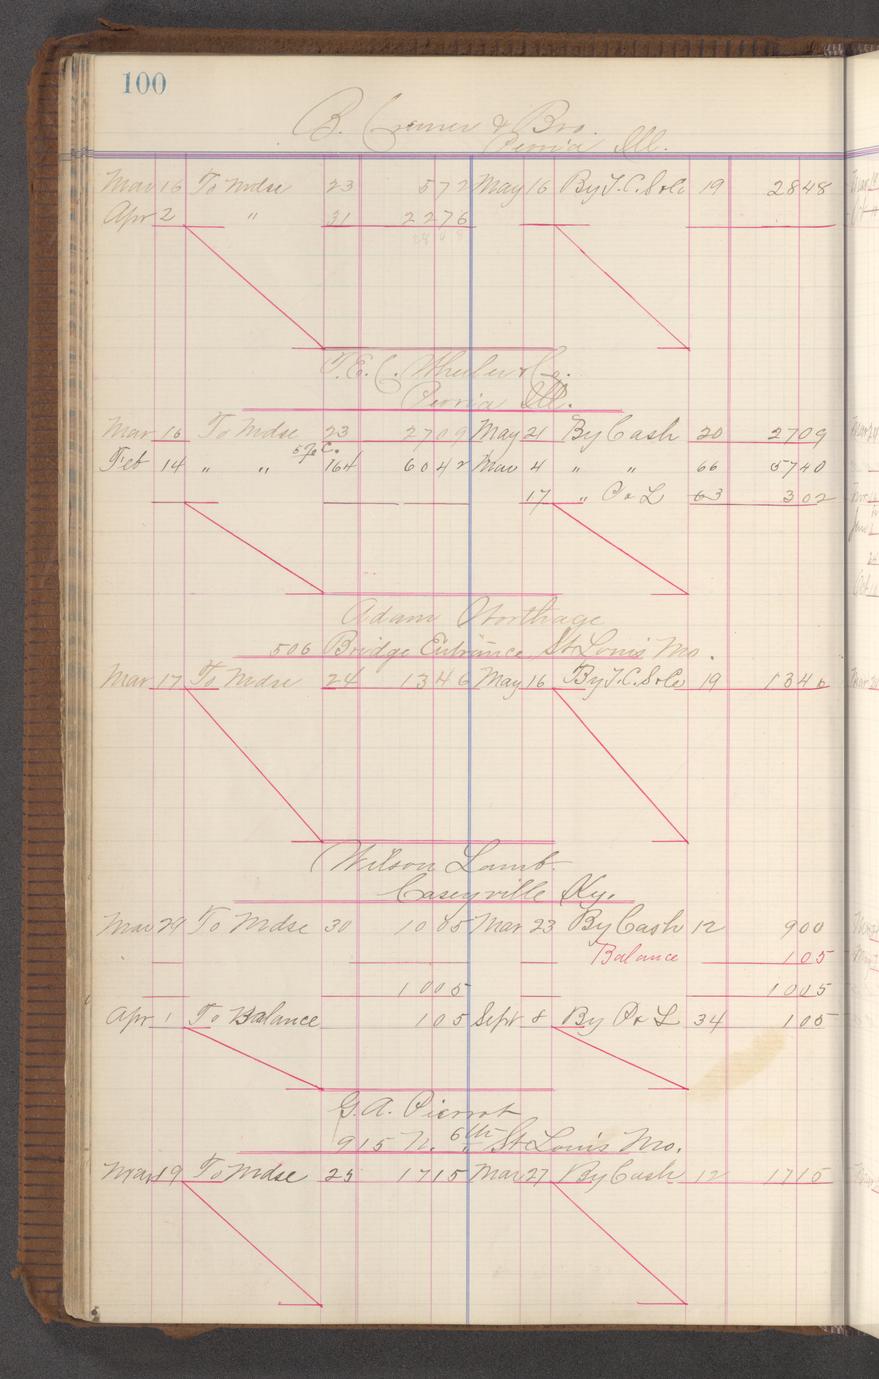 100
B. Cremer & Bro.
Peoria Ill.
Mar 16 To Mdse 23 572 May 16 By T.C.S&Co 19 2848
Apr 2 " 31 2276
2848
T.E.C. Wheeler & Co.
Peoria Ill.
Mar 16 To Mdse 23 2709 May 21 By Cash 20 2709
5% C.
Feb 14 " " 164 6042 Mar 4 " " 66 5740
17 " P&L 63 302
Adam
506 Bridge Entrance St Louis Mo.
Mar 17 To Mdse 24 1346 May 16 By T.C.S&Co 19 1346
Wilson Lamb
Caseyville Ky.
Mar 29 To Mdse 30 1005 Mar 23 By Cash 12 900
Balance 105
1005 1005
Apr 1 To Balance 105 Sept 8 By P&L 34 105
G.A. Pierrot
915 N. 6th St Louis Mo.
Mar 19 To Mdse 25 1715 Mar 27 By Cash 12 1715